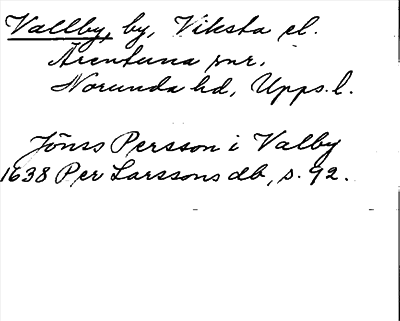 Vallby, by, Viksta el.
Ärentuna snr.
Norunda hd, Upps. l.
Jöns Persson i Valby
1638 Per Larssons db, s. 92.